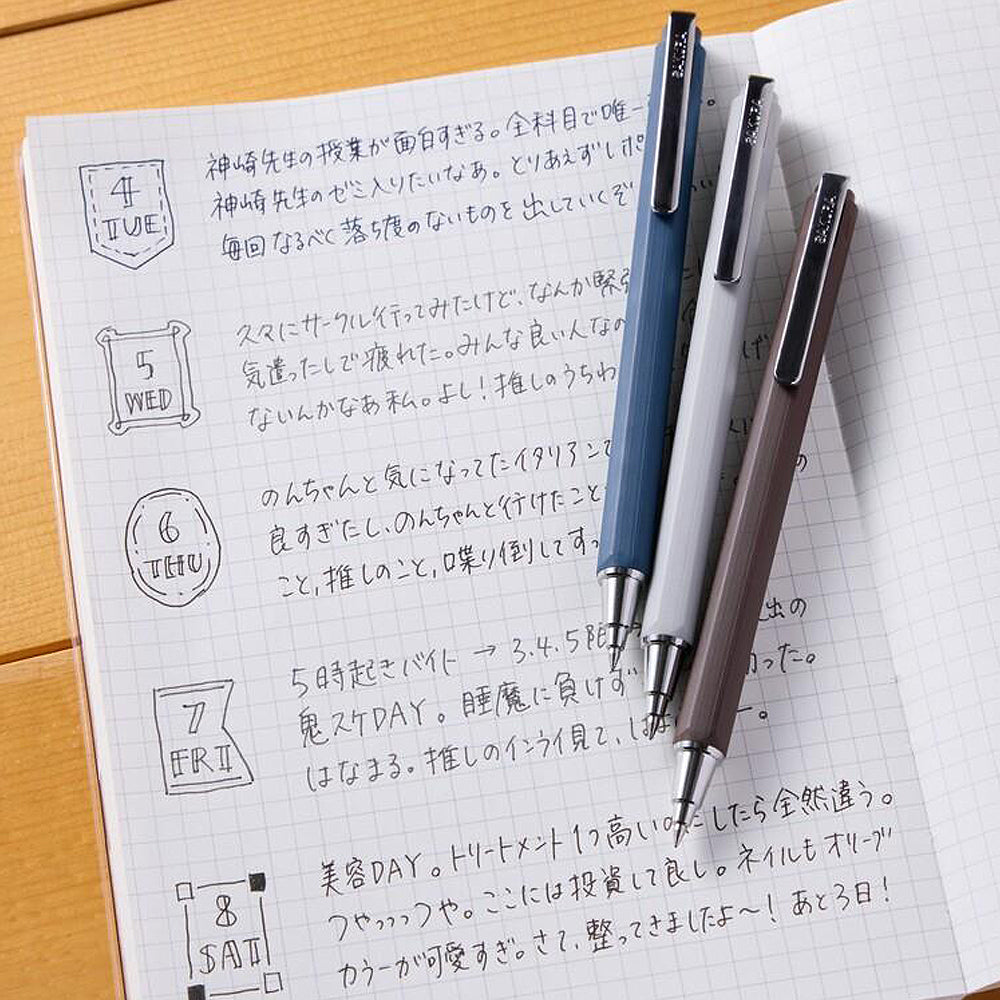 SAKURA
SAKURA
SAKURA
4
TUE
神崎先生の授業が面白すぎる。全科目で唯一
神崎先生のゼミ入りたいなあ。とりあえずレポ
毎回なるべく落ち度のないものを出していくぞ
5
WED
久々にサークル行ってみたけど、なんか緊張
気遣ったしで疲れた。みんな良い人なの
ないんかなあ私。よし！推しのうちわ
6
THU
のんちゃんと気になってたイタリアンで
良すぎたし、のんちゃんと行けたこと
こと,推しのこと,喋り倒してすっ
7
FRI
5時起きバイト → 3.4.5限 出の
鬼スケDAY。睡魔に負けず かった。
はなまる。推しのインライ見て、はな ー。
8
SAT
美容DAY。トリートメント1つ高いのにしたら全然違う。
つやっっっつや。ここには投資して良し。ネイルもオリーブ
カラーが可愛すぎ。さて、整ってきましたよ〜！あと3日！